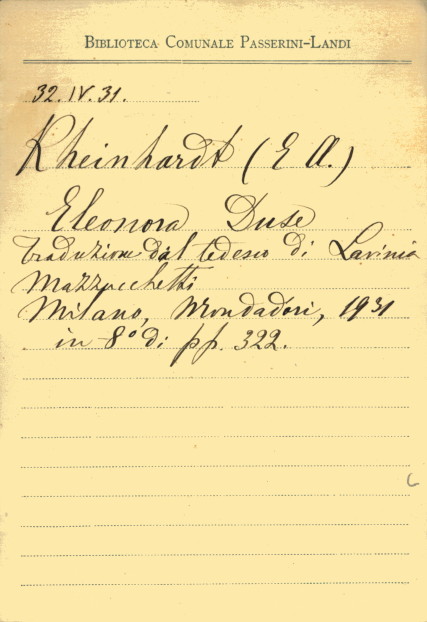 BIBLIOTECA COMUNALE PASSERINI-LANDI
32.IV.31.
Rheinhardt (E A.)
Eleonora Duse
Traduzione dal tedesco di Lavinia
Mazzucchetti
Milano, Mondadori, 1931
in 8° di pp. 322.